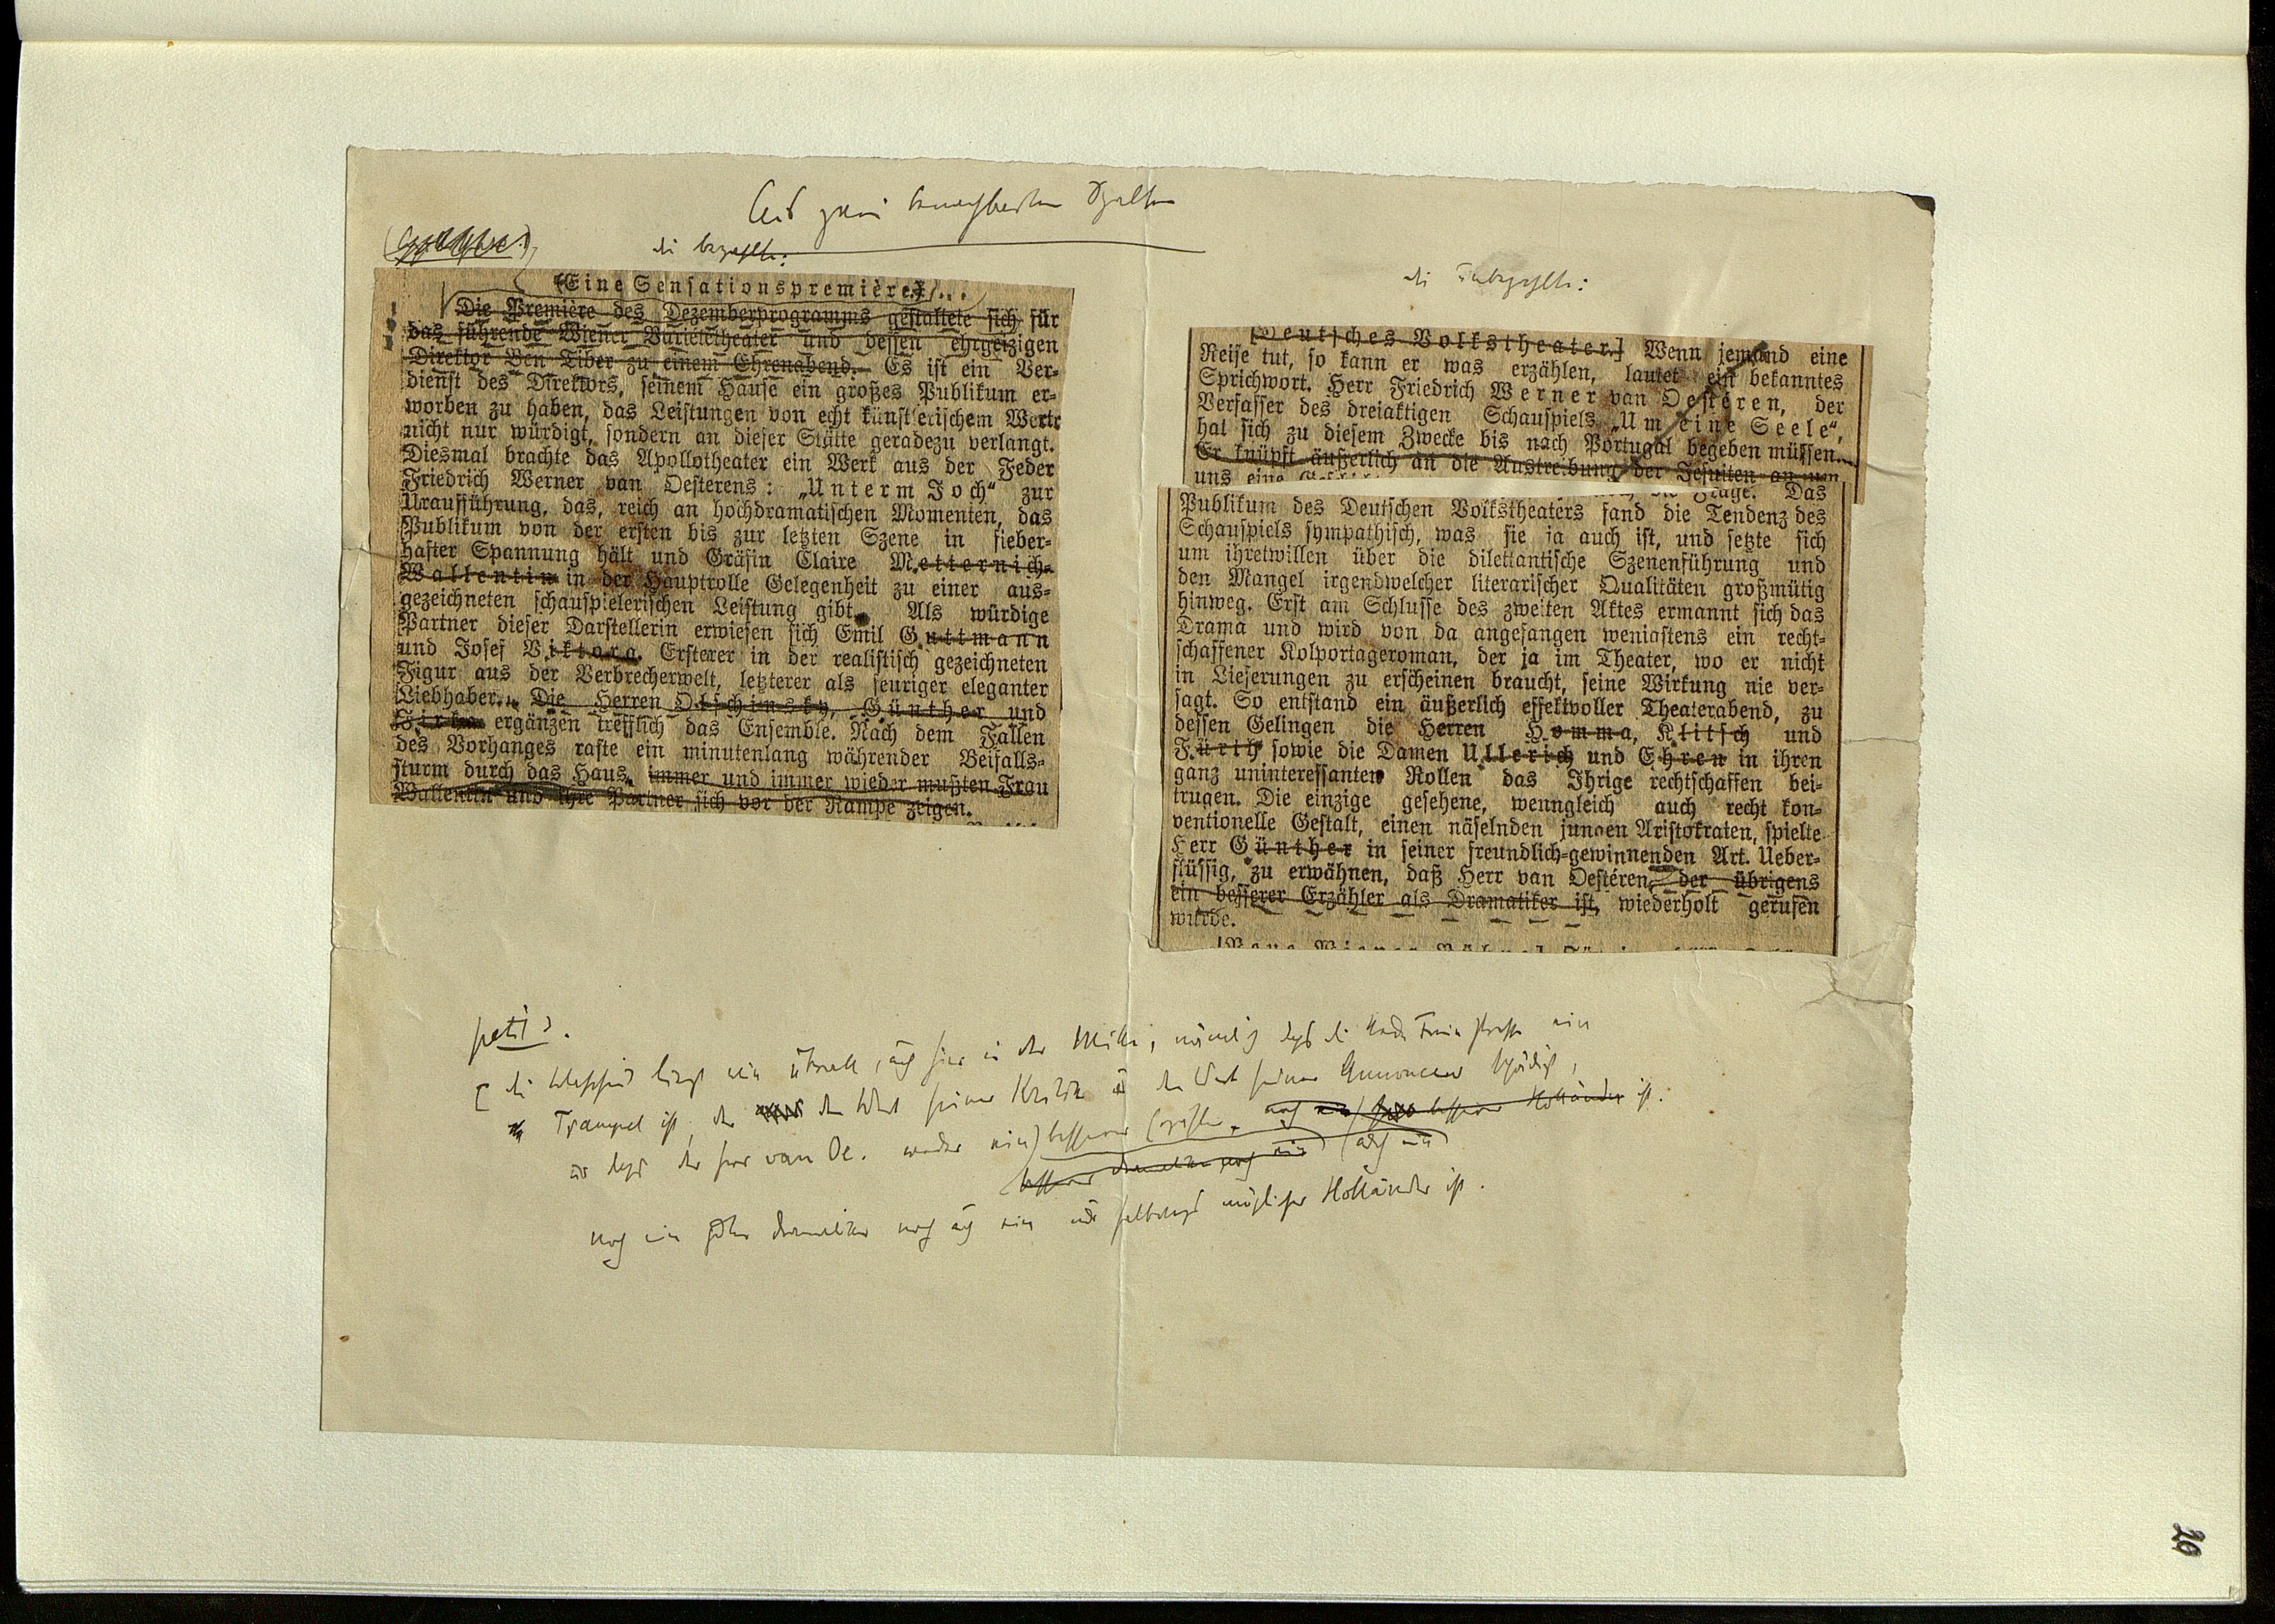 Aus zwei benachbarten Spalten
die bezahlte:
(Eine Sensationspremière.) ...
Die Première des Dezemberprogramms gestaltete sich für
das führende Wiener Varietétheater und dessen ehrgeizigen
Direktor Ben Tiber zu einem Ehrenabend. Es ist ein Ver-
dienst des Direktors, seinem Hause ein großes Publikum er-
worben zu haben, das Leistungen von echt künstlerischem Werte
nicht nur würdigt, sondern an dieser Stätte geradezu verlangt.
Diesmal brachte das Apollotheater ein Werk aus der Feder
Friedrich Werner van Oesterens: „Unterm Joch“ zur
Uraufführung, das, reich an hochdramatischen Momenten, das
Publikum von der ersten bis zur letzten Szene in fieber-
hafter Spannung hält und Gräfin Claire Metternich-
Wallentin in der Hauptrolle Gelegenheit zu einer aus-
gezeichneten schauspielerischen Leistung gibt. Als würdige
Partner dieser Darstellerin erwiesen sich Emil Guttmann
und Josef Viktora. Ersterer in der realistisch gezeichneten
Figur aus der Verbrecherwelt, letzterer als feuriger eleganter
Liebhaber. Die Herren Olschinsky, Günther und
ergänzen trefflich das Ensemble. Nach dem Fallen
des Vorhanges raste ein minutenlang währender Beifalls-
sturm durch das Haus, immer und immer wieder mußten Frau
Wallentin und ihre Partner sich vor der Rampe zeigen.
die unbezahlte:
[Deutsches Volkstheater.] Wenn jemand eine
Reise tut, so kann er was erzählen, lautet ein bekanntes
Sprichwort. Herr Friedrich Werner van Oestéren, der
Verfasser des dreiaktigen Schauspiels „Um eine Seele“,
hat sich zu diesem Zwecke bis nach Portugal begeben müssen.
Er knüpft äußerlich an die Austreibung der Jesuiten an, um
uns eine
Frage. Das
Publikum des Deutschen Volkstheaters fand die Tendenz des
Schauspiels sympathisch, was sie ja auch ist, und setzte sich
um ihretwillen über die dilettantische Szenenführung und
den Mangel irgendwelcher literarischer Qualitäten großmütig
hinweg. Erst am Schlusse des zweiten Aktes ermannt sich das
Drama und wird von da angefangen wenigstens ein recht-
schaffener Kolportageroman, der ja im Theater, wo er nicht
in Lieferungen zu erscheinen braucht, seine Wirkung nie ver-
sagt. So entstand ein äußerlich effektvoller Theaterabend, zu
dessen Gelingen die Herren Homma, Klitsch und
Fürth sowie die Damen Ullerich und Ehren in ihren
ganz uninteressanten Rollen das Ihrige rechtschaffen bei-
trugen. Die einzige gesehene, wenngleich auch recht kon-
ventionelle Gestalt, einen näselnden jungen Aristokraten, spielte
Herr Günther in seiner freundlich-gewinnenden Art. Ueber-
flüssig, zu erwähnen, daß Herr van Oestéren, der übrigens
ein besserer Erzähler als Dramatiker ist, wiederholt gerufen
wurde.
petit
[ die Wahrheit liegt wie überall, auch hier in der Mitte, nämlich daß die Neue Freie Presse ein
Trampel ist, der den Wert seiner Kritik und den Wert seiner Annoncen
und daß der Herr van Oe. weder ein besserer Erzähler, noch ein besserer Holländer ist.
besserer Dramatiker noch ein
noch ein guter Dramatiker noch auch ein möglicher Holländer ist.
29